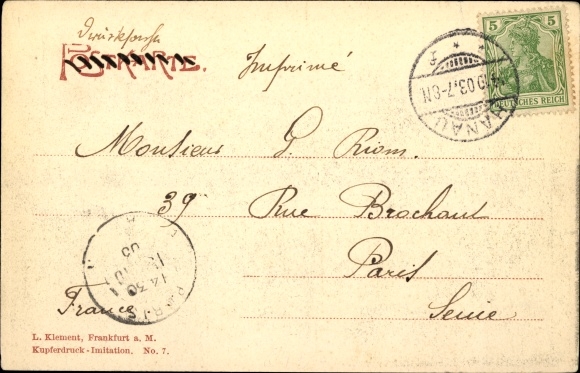 Drucksache
Imprimé
5 5
DEUTSCHES REICH
HANAU
03.7-8N.
Monsieur G. Riom.
39 Rue Brochant
Paris
Seine
France
PARIS
14 30
03
L. Klement, Frankfurt a. M.
Kupferdruck-Imitation, No. 7.